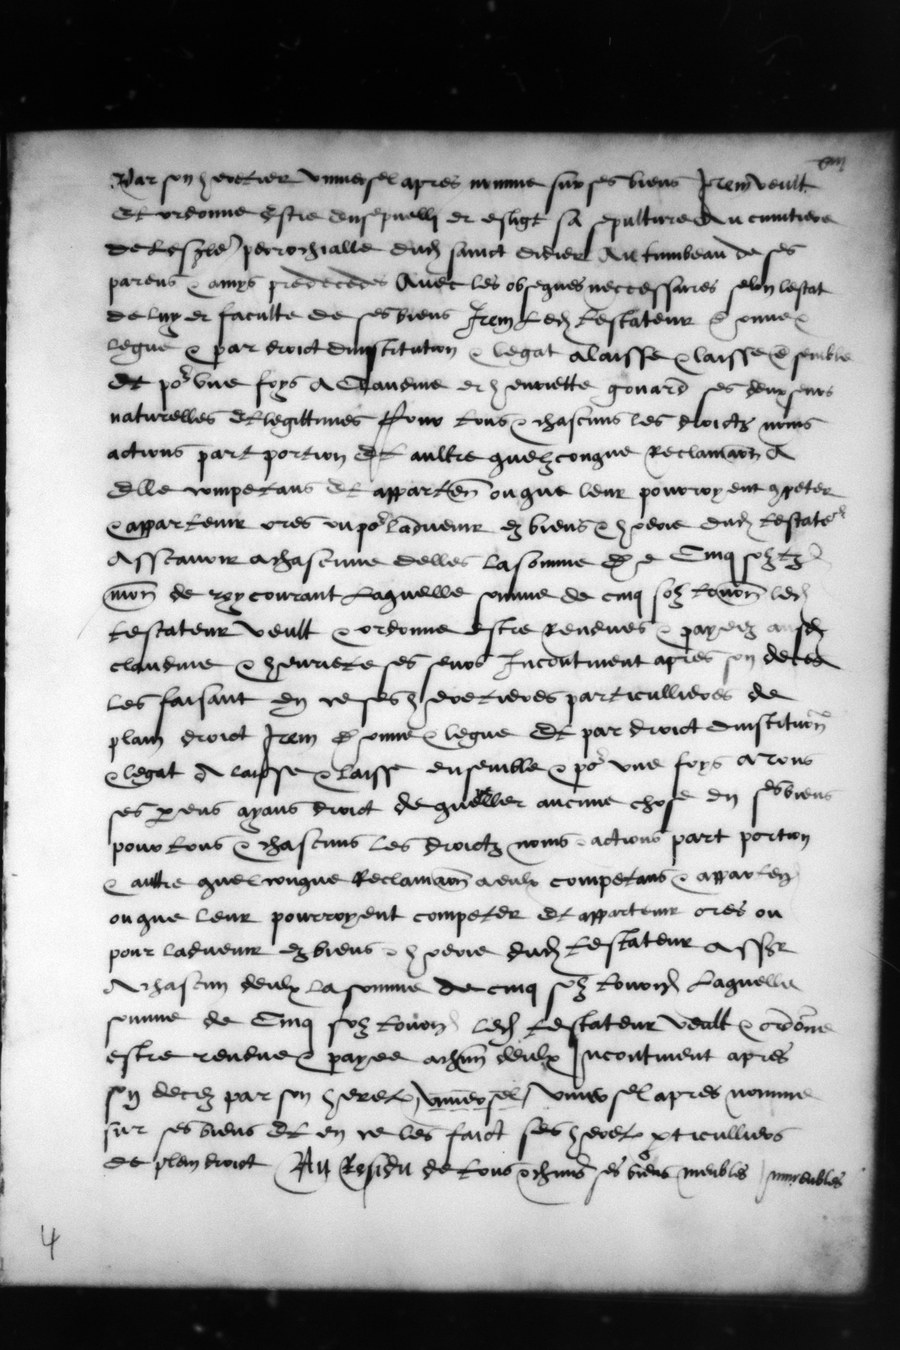 Par son heretier universel apres nomme sur ses biens Item veult
Et ordonne Estre ensepvelli et eslict sa sepulture Au cimitiere
de lesglé perrochialle dud sainct Didier Au tumbeau de ses
parens & amys predecedes Avec les obseques neccessaires selon lestat
de luy et faculte de ses biens Item led testateur donne &
legue & par droict dinstitution & legat a laisse & laisse ensemble
Et po une foys A Claudine et henriette gonard ses deux seurs
naturelles et legittimes Pour tous & chascuns les droictz noms
actions part portion Et aultre quelzconque Reclamaon A
Elle competans Et apparten ou que leur pourroyent cpeter
& appartenir ores ou po ladvenir ez biens & hoerie dud testate
Asscavoir a chascune delles la somme de Cinq solz tz
mon de roy courant Laquelle somme de cinq solz tourn led
testateur veult & ordonne estre Rendues & payeez ausd
claudine & henriete ses seurs Incontinent apres son deces
Les faisant En ce ses heretieres particullieres de
plain droict Item donne & legue Et par droict dinstituon
& legat A laisse & laisse ensemble & po une foys a tous
ses parens ayans droict de quereller aucune chose En ses biens
pour tous & chascuns Les droictz noms & actions part portion
& aultre quelconque Reclamaon a eulx competans & apparten
ou que leur pourroyent competer Et appartenir ores ou
pour ladvenir ez biens & hoerie dud testateur Asscr
A chascun deulx la somme de cinq solz tournoi Laquelle
somme de Cinq solz tourn led testateur veult & ordonne
estre rendue & payee a chun deulx Incontinent apres
son decez par son heret universel universel apres nomme
sur ses biens Et en ce les faict ses heret pticulliers
de plen droict Au Residu de tous & chuns ses biens meubles immeubles
4